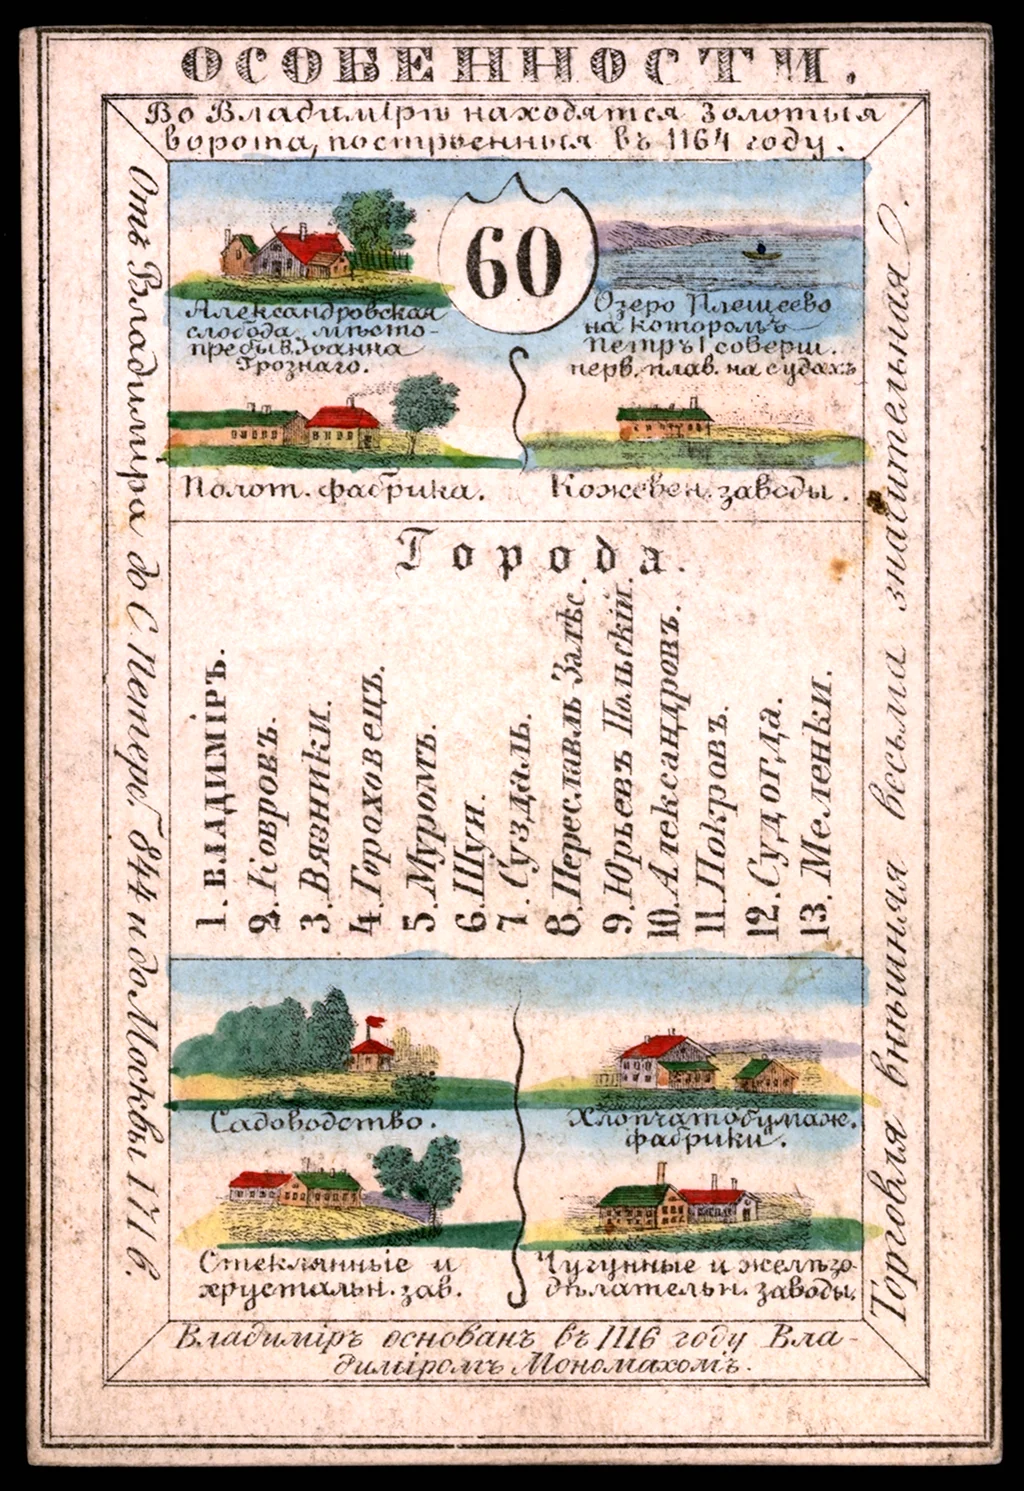 ОСОБЕННОСТИ.
Во Владимірѣ находятся Золотыя
ворота, построенныя въ 1164 году.
Отъ Владиміра до С. Петерб. 844 и до Москвы 171 в.
60
Александровская
слобода, мѣсто-
пребыв. Іоанна
Грознаго.
Озеро Плещеево
на которомъ
Петръ I соверш.
перв. плав. на судахъ
Полот. фабрика.
Кожевен. заводы.
Города.
1. ВЛАДИМІРЪ.
2. Ковровъ.
3. Вязники.
4. Гороховецъ.
5. Муромъ.
6. Шуя.
7. Суздаль.
8. Переславль Залѣс.
9. Юрьевъ Польскій.
10. Александровъ.
11. Покровъ.
12. Судогда.
13. Меленки.
Садоводство.
Хлопчатобумаж.
фабрики.
Стеклянные и
хрустальн. зав.
Чугунные и желѣзо-
дѣлательн. заводы.
Торговля внѣшняя весьма значительная.
Владиміръ основанъ въ 1116 году Вла-
диміромъ Мономахомъ.